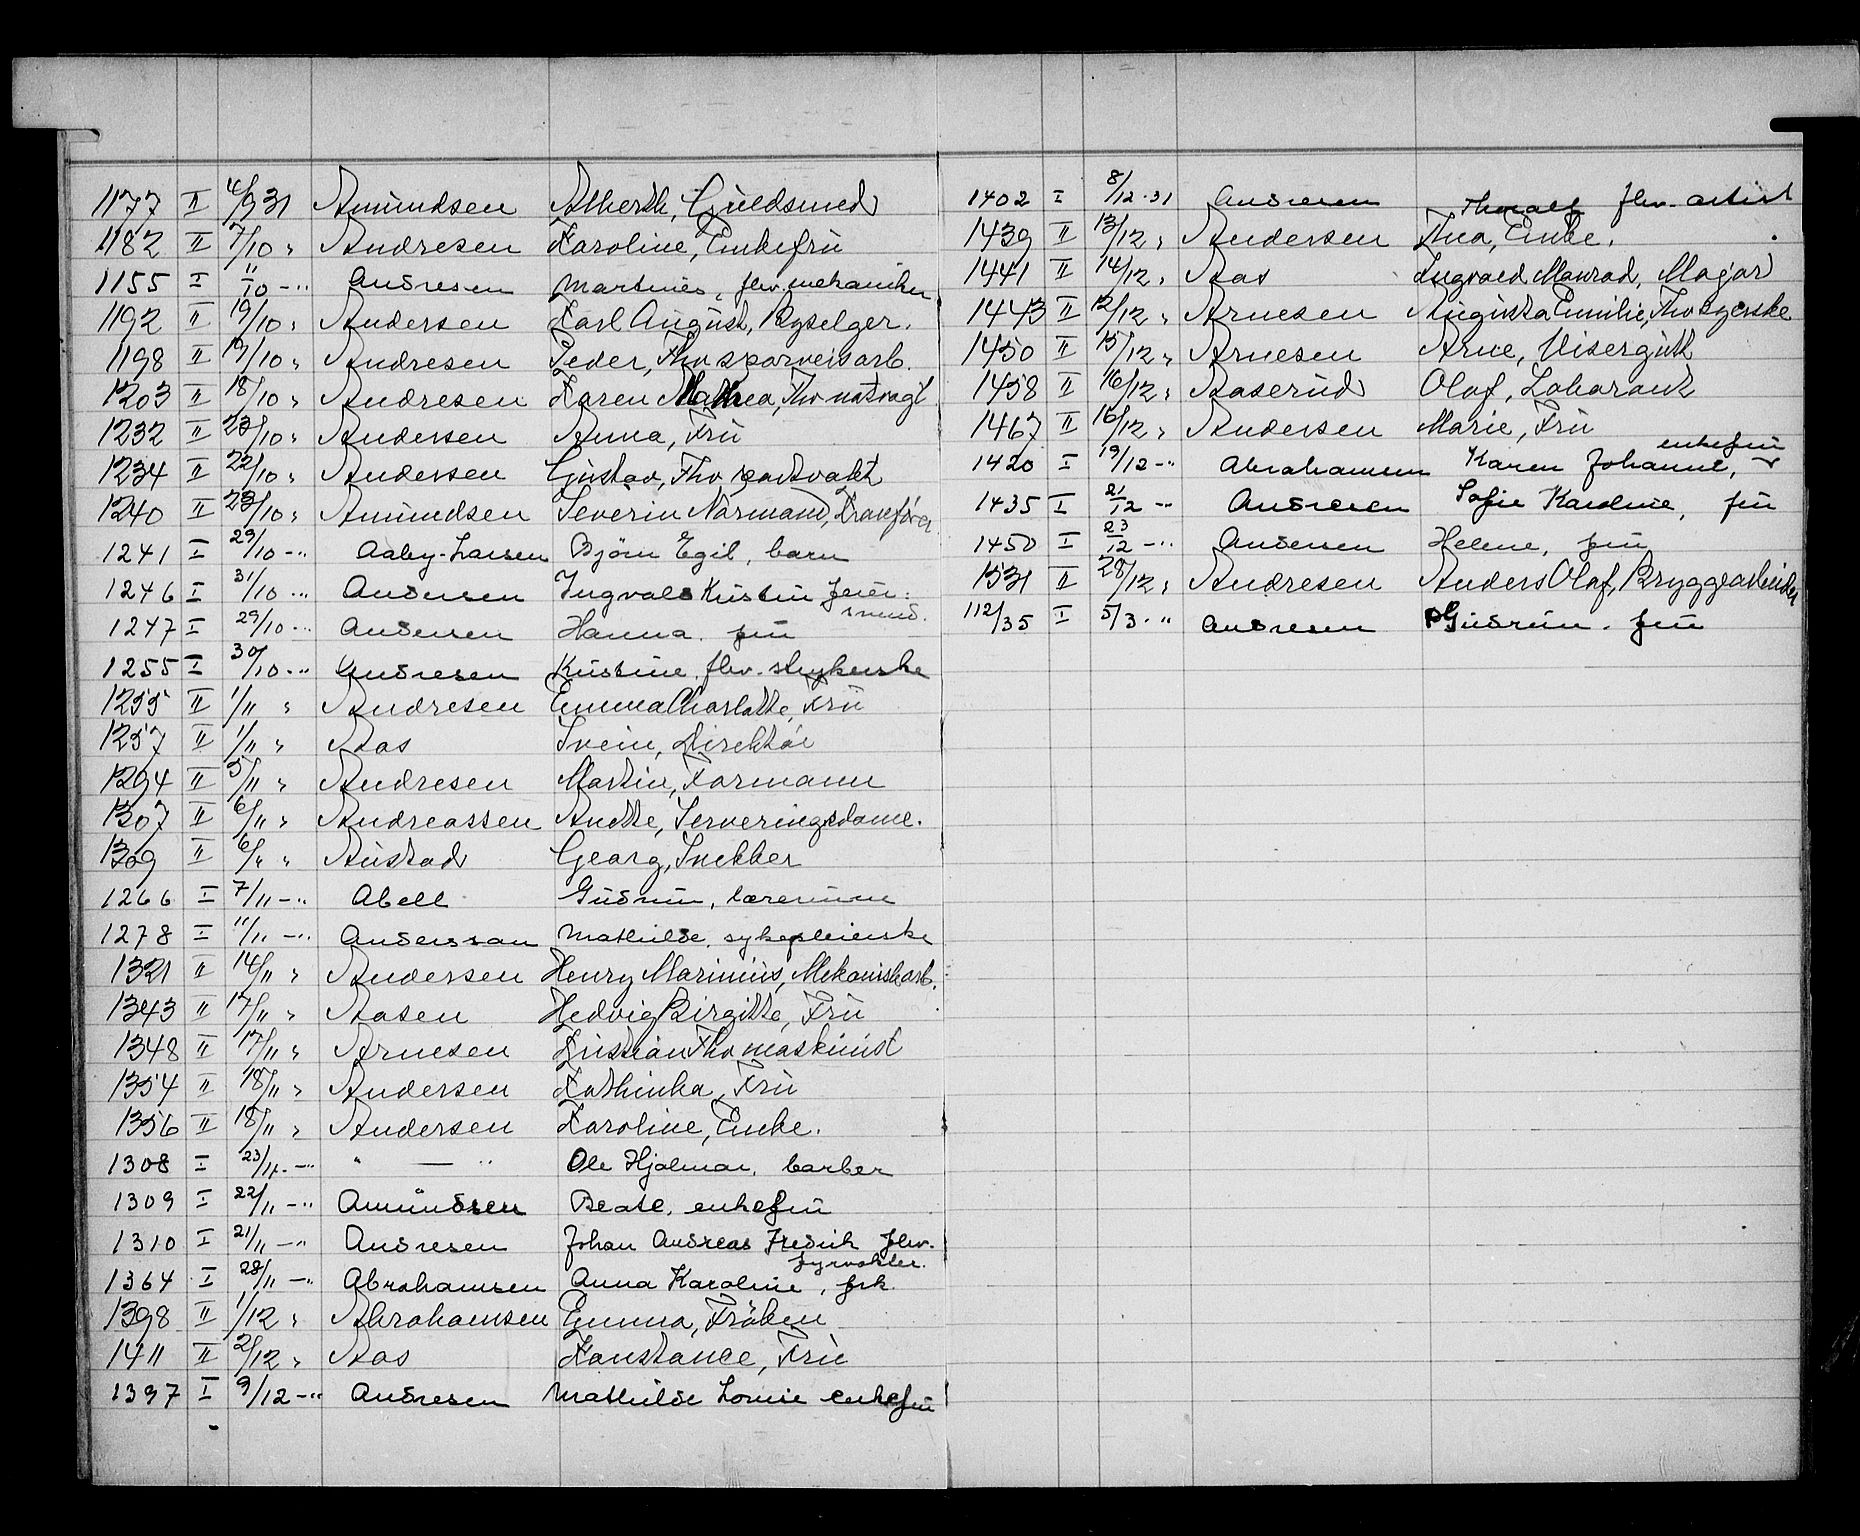 1177 II 4/9 31 Amundsen Atherth, Guldsmed
1182 II 7/10 " Andresen Karoline, Enkefru
1155 I 11/10 -" Andresen Martinus, fhv. mekaniker
1192 II 19/10 " Andersen Karl August, Byselger.
1198 II 19/10 " Andresen Peder, Fhv sporveisarb.
1203 II 18/10 " Andresen Karen Mathea, Fhv natvagt
1232 II 23/10 " Andersen Anna, Fru
1234 II 22/10 " Andersen Gustav, Fhv
1240 II 23/10 " Amundsen Severin Normann, Kranfører
1241 I 29/10 -" Aaby-Larsen Bjørn Egil, barn
1246 I 31/10 -" Andersen Ingvald Kristin feier-
smed.
1247 I 29/10 -" Andersen Hanna. fru
1255 I 30/10 -" Andresen Kristine, fhv. strykerske
1255 II 1/11 " Andresen Emma Charlotte, Fru
1257 II 1/11 " Aas Svein, Direktør
1294 II 5/11 " Andresen Martin, Formann
1307 II 6/11 " Andreassen Anette, Serveringsdame.
1309 II 6/11 " Austad Georg, Snekker
1266 I 7/11 -" Abell Gudrun, lærerinne
1278 I 11/11 -" Anderssan Mathilde, sykepleierske
1321 II 14/11 " Andersen Henry Marinius, Mekaniskarb.
1343 II 17/11 " Aasen Hedvig Birgitte, Fru
1348 II 17/11 " Arnesen Kristian Fhv maskinist
1354 II 18/11 " Andersen Kathinka, Fru
1356 II 18/11 " Andersen Karoline, Enke.
1308 I 23/11 -" " — " Ole Hjalmar, barber
1309 I 22/11 -" Amundsen Beate, enkefru
1310 I 21/11 -" Andresen Johan Andreas Fredrik fhv.
fyrvokter.
1364 I 28/11 -" Abrahamsen Anna Karoline, frk.
1398 II 1/12 " Abrahamsen Emma, Frøken
1411 II 2/12 " Aas Konstance, Fru
1397 I 9/12 -" Andresen Mathilde Louise enkefru
1402 I 8/12 -31 Andresen Thoralf fhv. artist
1439 II 13/12 " Andersen Thea, Enke.
1441 II 14/12 " Aas Ingvald Monrad, Major
1443 II 12/12 " Arnesen Augusta Emilie, Fhv Syerske
1450 II 15/12 " Arnesen Arne, Visergutt
1458 II 16/12 " Aaserud Olaf, Laborant
1467 II 16/12 " Andersen Marie, Fru
1420 I 19/12 -" Abrahamsen Karen Johanne, enkefru
1435 I 21/12 -" Andresen Sofie Karoline, fru
1450 I 23/12 -" Andersen Helene, fru
1531 II 28/12 " Andresen Anders Olaf, Bryggearbeider
112/35 I 5/3 -" Andresen Gudrun. fru